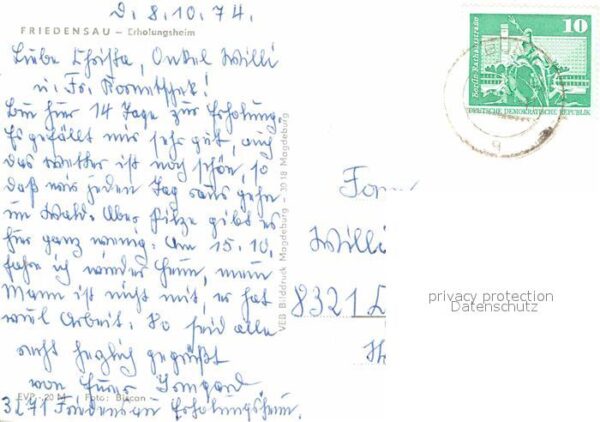 D. 8.10.74.
FRIEDENSAU – Erholungsheim
Liebe Christa, Onkel Willi
u. Fr.
Bin hier 14 Tage zur Erholung.
Es gefällt mir sehr gut, auch
das Wetter ist noch schön, so
daß wir jeden Tag raus gehn
im Wald. Aber Pilze gibt es
hier ganz wenig. Am 15.10.
fahre ich wieder heim, mein
Mann ist nicht mit, er hat
viel Arbeit. So seid alle
recht herzlich gegrüßt
von Eurer Irmgard.
EVP -,20 M Foto: Biscan
3271 Friedensau Erholungsheim.
VEB Bilddruck Magdeburg – 3018 Magdeburg
10
Berlin, Rathausstraße
DEUTSCHE DEMOKRATISCHE REPUBLIK
g
Fam
Willi
8321
privacy protection
Datenschutz